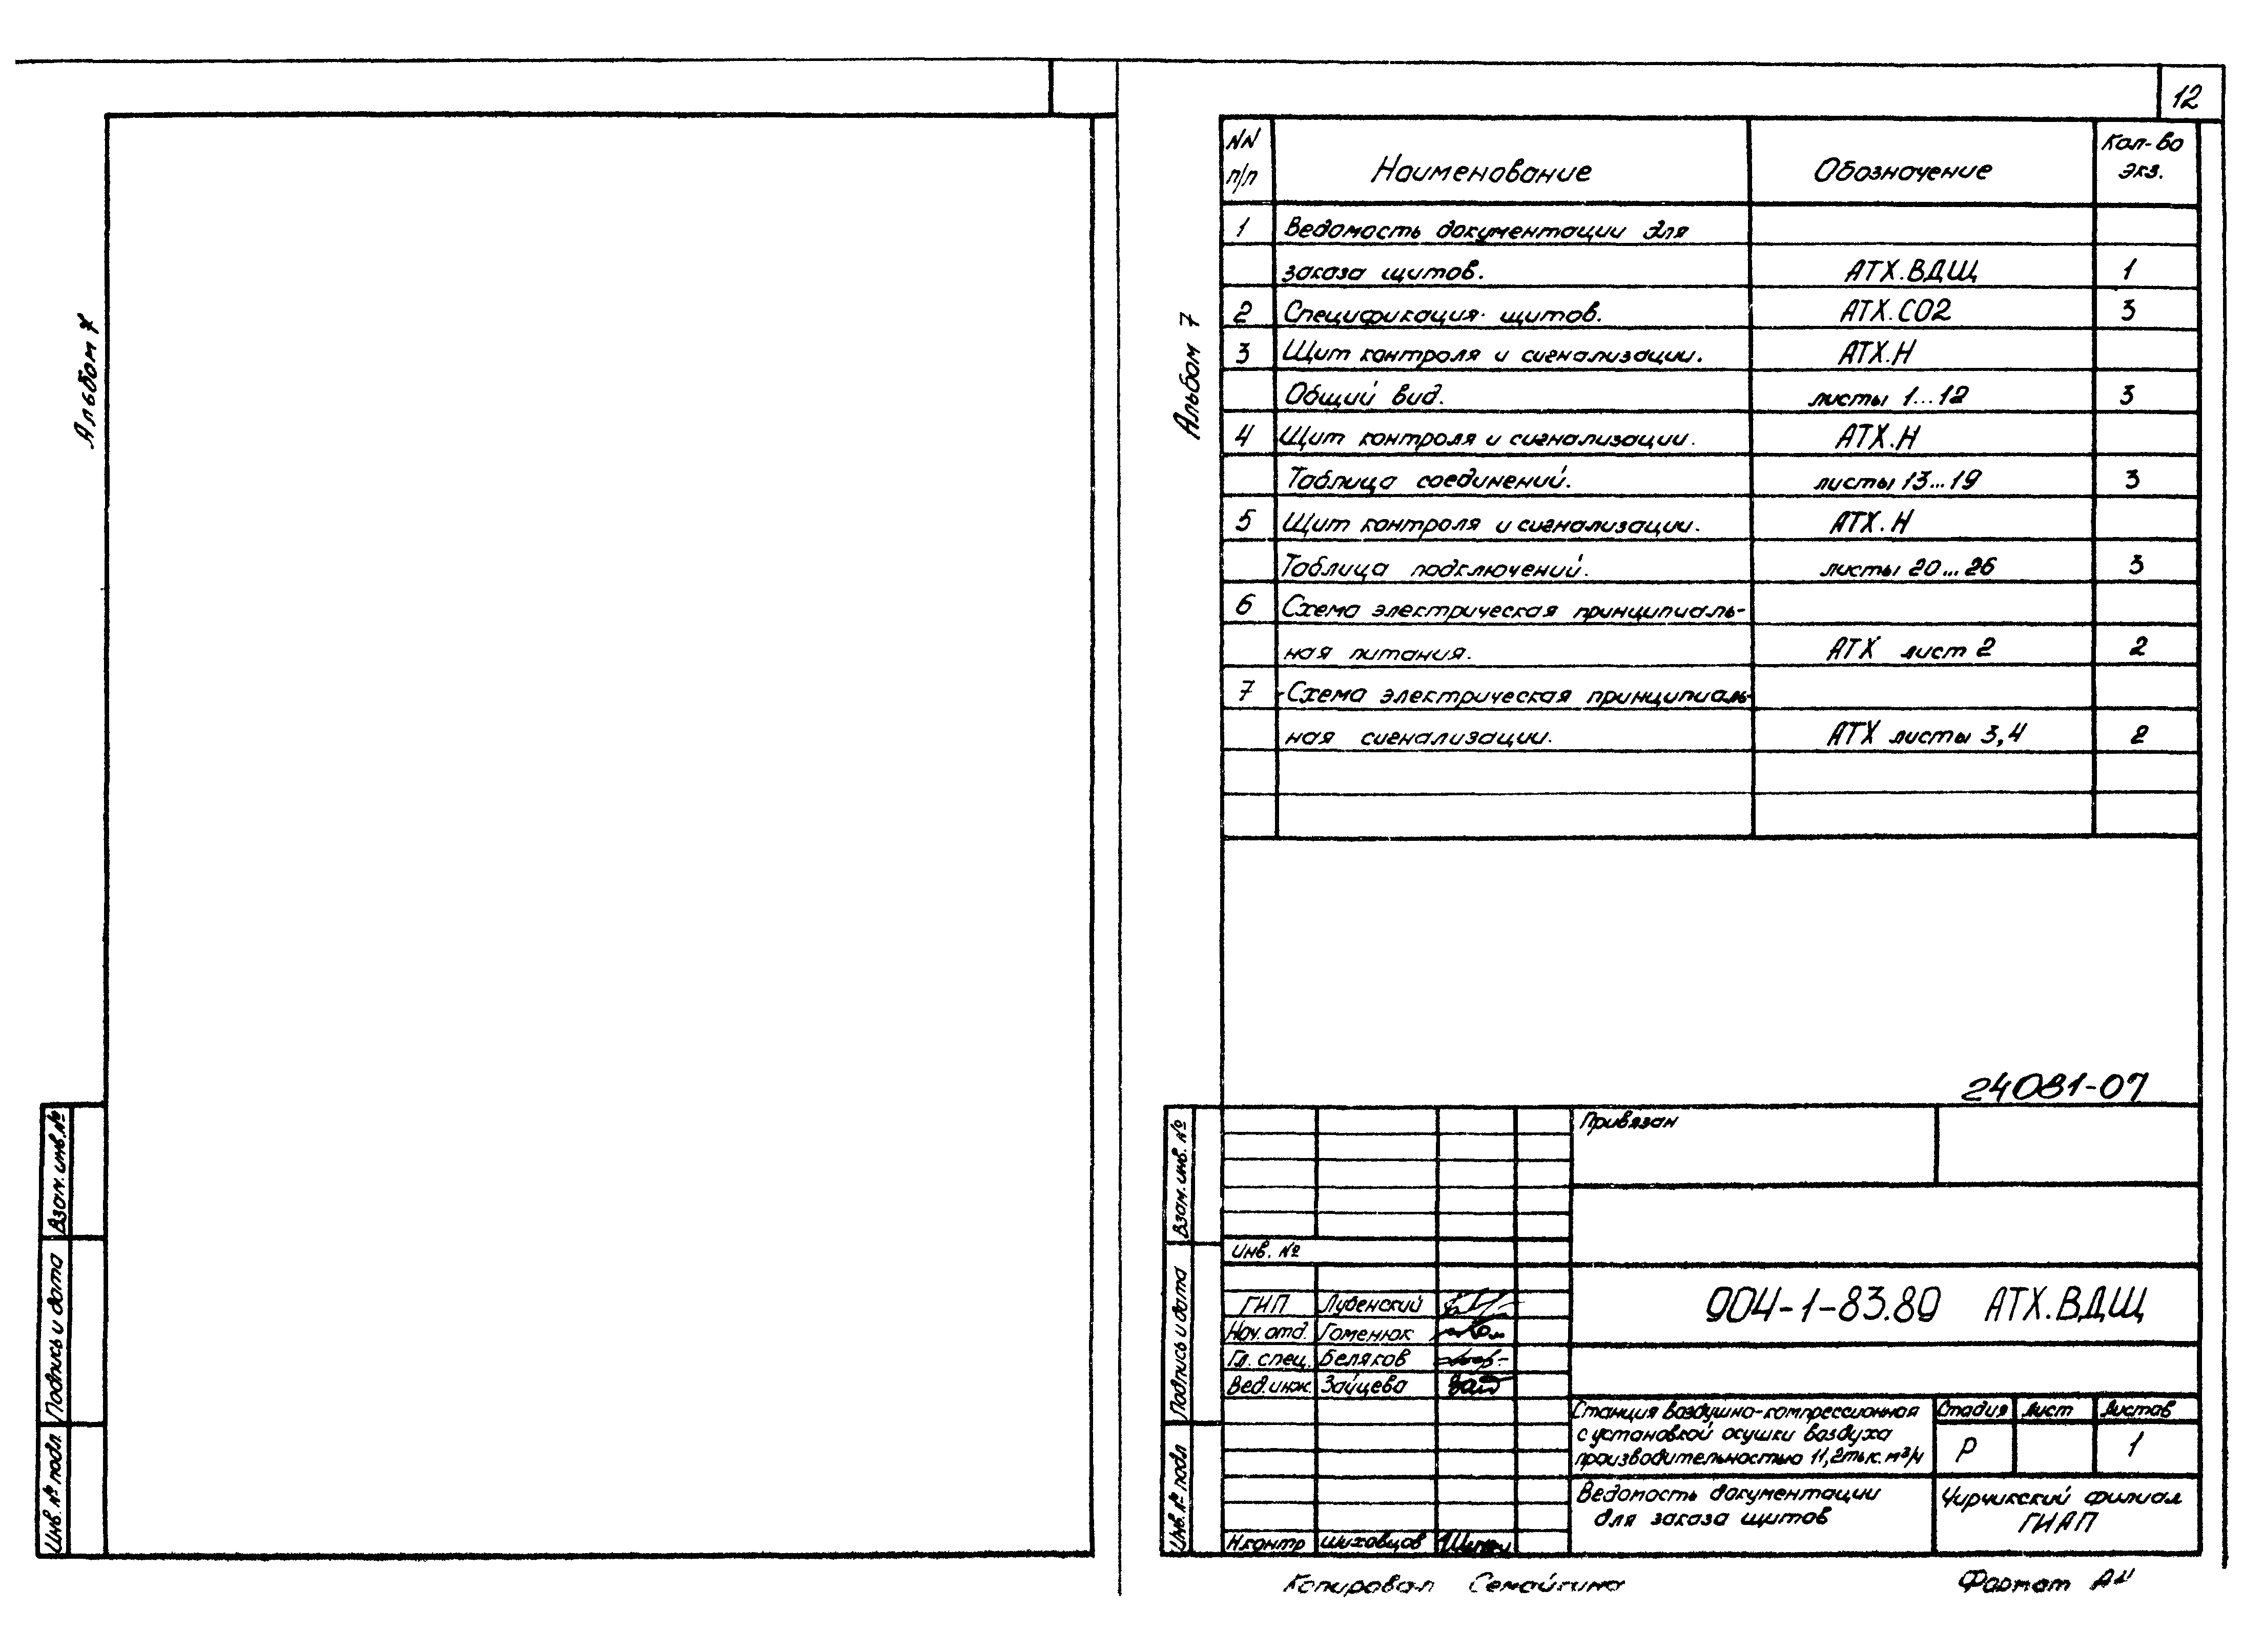 Альбом 7
Взам. инв. №
Подпись и дата
Инв. № подл.
12
Альбом 7
NN п/п Наименование Обозначение Кол-во экз.
1 Ведомость документации для
заказа щитов. АТХ.ВДЩ 1
2 Спецификация щитов. АТХ.СО2 3
3 Щит контроля и сигнализации. АТХ.Н
Общий вид. листы 1...12 3
4 Щит контроля и сигнализации. АТХ.Н
Таблица соединений. листы 13...19 3
5 Щит контроля и сигнализации. АТХ.Н
Таблица подключений. листы 20...26 3
6 Схема электрическая принципиаль-
ная питания. АТХ лист 2 2
7 Схема электрическая принципиаль-
ная сигнализации. АТХ листы 3,4 2
24081-07
Взам. инв. №
Подпись и дата
Инв. № подл
Привязан
Инв. №
904-1-83.89 АТХ.ВДЩ
ГИП Лубенский
Нач. отд. Гоменюк
Гл. спец. Беляков
Вед. инж. Зайцева
Н.контр Шиховцов
Станция воздушно-компрессионная
с установкой осушки воздуха
производительностью 11,2 тыс. м³/ч
Стадия Лист Листов
Р 1
Ведомость документации
для заказа щитов
Чирчикский филиал
ГИАП
Копировал Семайкина
Формат А4